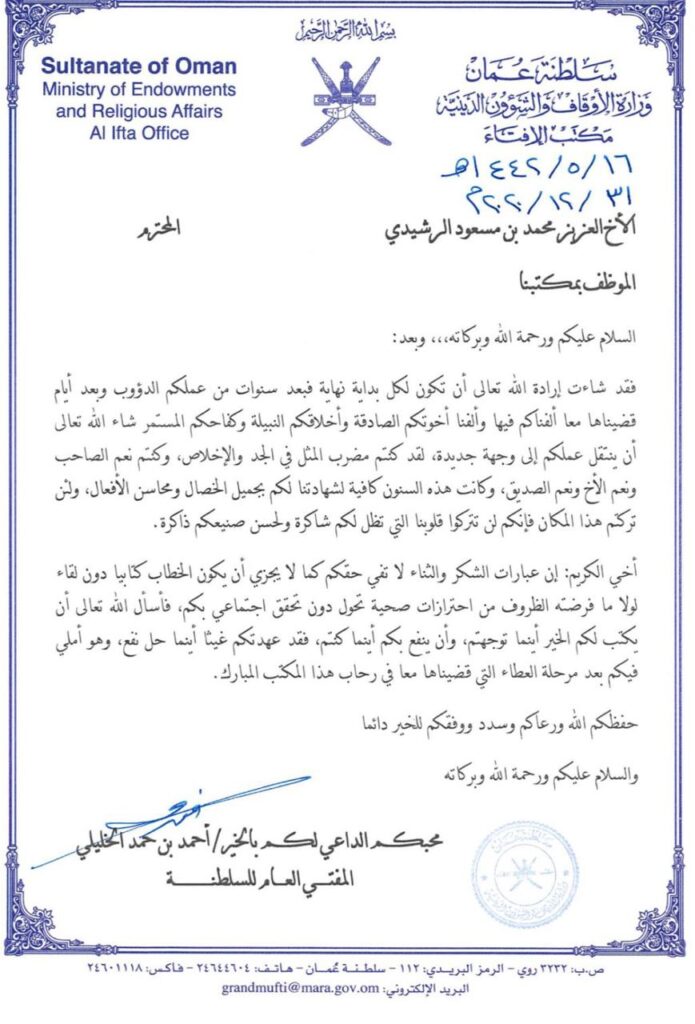 بسم الله الرحمن الرحيم
Sultanate of Oman
Ministry of Endowments
and Religious Affairs
Al Ifta Office
سلطنة عمان
وزارة الأوقاف والشؤون الدينية
مكتب الإفتاء
١٤٤٢/٥/١٦هـ
٢٠٢٠/١٢/٣١م
الأخ العزيز محمد بن مسعود الرشيدي المحترم
الموظف بمكتبنا
السلام عليكم ورحمة الله وبركاته،،، وبعد:
فقد شاءت إرادة الله تعالى أن تكون لكل بداية نهاية فبعد سنوات من عملكم الدؤوب وبعد أيام
قضيناها معا ألفناكم فيها وألفنا أخوتكم الصادقة وأخلاقكم النبيلة وكفاحكم المستمر شاء الله تعالى
أن ينتقل عملكم إلى وجهة جديدة، لقد كنتم مضرب المثل في الجد والإخلاص، وكنتم نعم الصاحب
ونعم الأخ ونعم الصديق، وكانت هذه السنون كافية لشهادتنا لكم بجميل الخصال ومحاسن الأفعال، ولئن
تركتم هذا المكان فإنكم لن تتركوا قلوبنا التي تظل لكم شاكرة ولحسن صنيعكم ذاكرة.
أخي الكريم: إن عبارات الشكر والثناء لا تفي حقكم كما لا يجزي أن يكون الخطاب كتابيا دون لقاء
لولا ما فرضته الظروف من احترازات صحية تحول دون تحقق اجتماعي بكم، فأسأل الله تعالى أن
يكتب لكم الخير أينما توجهتم، وأن ينفع بكم أينما كنتم، فقد عهدتكم غيثا أينما حل نفع، وهو أملي
فيكم بعد مرحلة العطاء التي قضيناها معا في رحاب هذا المكتب المبارك.
حفظكم الله ورعاكم وسدد ووفقكم للخير دائما
والسلام عليكم ورحمة الله وبركاته
محبكم الداعي لكم بالخير/ أحمد بن حمد الخليلي
المفتي العام للسلطنة
ص.ب: ٣٢٣٢ روي - الرمز البريدي: ١١٢ - سلطنة عُمان - هاتف: ٢٤٦٤٤٦٠٤ - فاكس: ٢٤٦٠١١١٨
البريد الإلكتروني: grandmufti@mara.gov.om